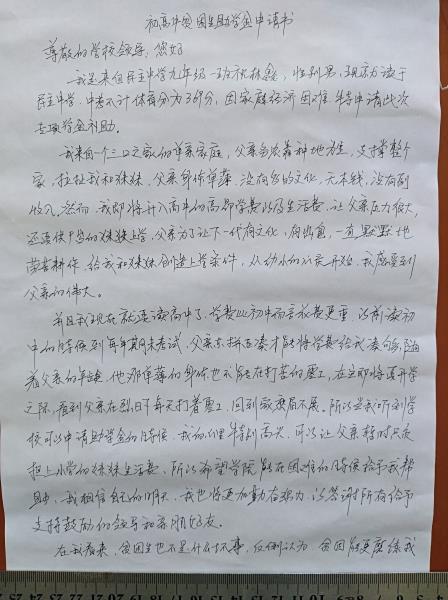 初高中贫困生助学金申请书
尊敬的学校领导：您好
我是来自民主中学九年级一班 性别男，现就读于
民主中学，中考不计体育分为369分，因家庭经济困难，特申请此次
专项学金补助。
我来自一个三口之家的单亲家庭，父亲务农靠种地为生，支撑整个
家，拉扯我和妹妹，父亲身体单薄，没有多的文化，无本钱，没有副
收入，然而，我即将升入高中的高昂学费以及生活费，让父亲压力很大，
还要供小学的妹妹上学，父亲为了让下一代有文化，有出息，一直默默地
劳苦耕作，给我和妹妹创造上学条件，从幼小的心灵开始，我感受到
父亲的伟大。
并且我现在就要读高中了，学费比初中而言收费更重，以前读初
中的时候到每年期末考试，父亲东拼西凑才能将学费给我凑够，随
着父亲的年龄，他那单薄的身体也不能在打苦的重工，在立即将要开学
之际，看到父亲在烈日下每天打着重工，回到家愁眉不展。所以当我听到学
校可以申请助学金的时候，我的心里特别高兴，可以让父亲暂时只负
担上小学的妹妹生活费，所以希望学院能在困难的时候给予我帮
助，我相信自己的明天，我也将更加勤奋努力，以答谢所有给予
支持鼓励的领导和亲朋好友。
在我看来，贫困生也不是什么坏事，反倒认为，贫困能更磨练我